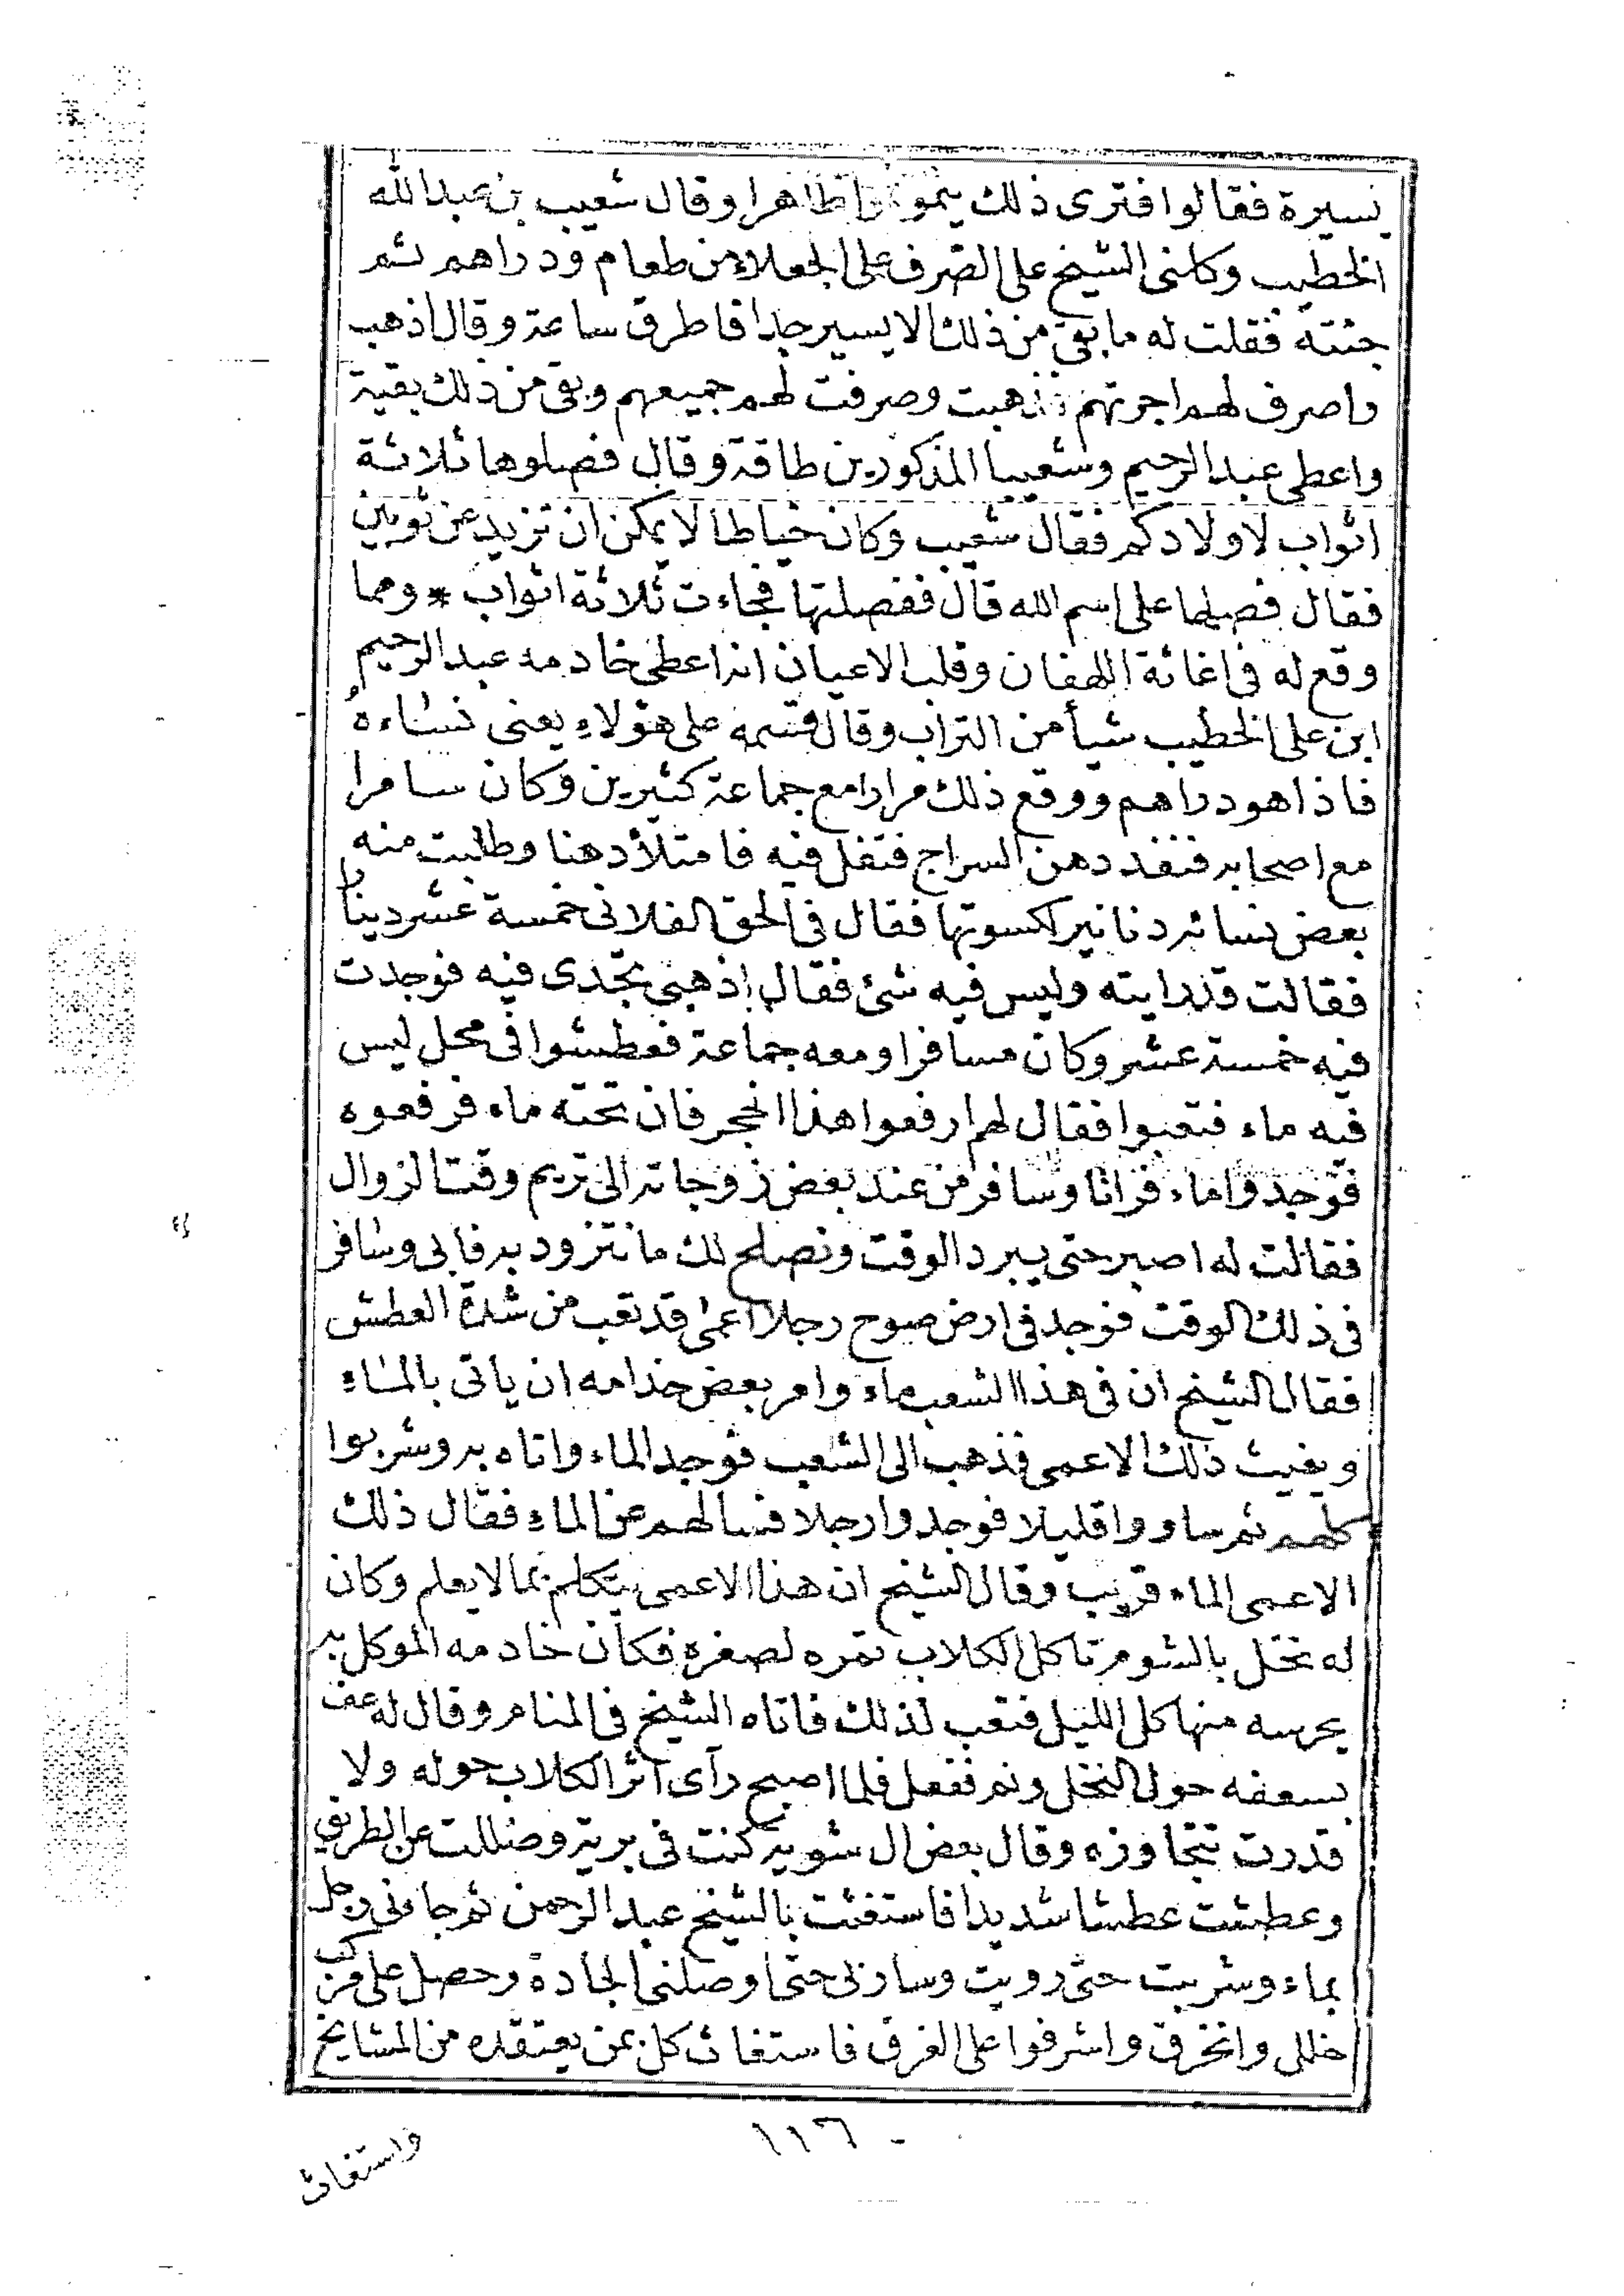 يسيرة فقالوا فترى ذلك ينمو نموا ظاهرا وقال شعيب بن عبدالله
الخطيب وكلنى الشيخ على الصرف على الجعلاء من طعام ودراهم ثم
جئته فقلت له ما بقى من ذلك الا يسير جدا فاطرق ساعة وقال اذهب
واصرف لهم اجرتهم فذهبت وصرفت لهم جميعهم وبقى من ذلك بقية
واعطى عبدالرحيم وشعيبا المذكورين طاقة وقال فصلوها ثلاثة
اثواب لاولادكم فقال شعيب وكان خياطا لا يمكن ان تزيد عن ثوبين
فقال فصلها على اسم الله قال ففصلتها فجاءت ثلاثة اثواب * ومما
وقع له فى اغاثة اللهفان وقلب الاعيان انه اعطى خادمه عبدالرحيم
ابن على الخطيب شيأ من التراب وقال قسمه على هؤلاء يعنى نساءه
فاذا هو دراهم ووقع ذلك مرارا مع جماعة كثيرين وكان سامرا
مع اصحابه فنفد دهن السراج فتفل فيه فامتلأ دهنا وطلبت منه
بعض نسائه دنانير لكسوتها فقال فى الحق الفلانى خمسة عشر دينارا
فقالت قد رايته وليس فيه شئ فقال اذهبى تجدى فيه فوجدت
فيه خمسة عشر وكان مسافرا ومعه جماعة فعطشوا فى محل ليس
فيه ماء فتعبوا فقال لهم ارفعوا هذا الحجر فان تحته ماء فرفعوه
فوجدوا ماء فراتا وسافر من عند بعض زوجاته الى تريم وقت الزوال
فقالت له اصبر حتى يبرد الوقت ونصلح لك ما تتزود به فابى وسافر
فى ذلك الوقت فوجد فى ارض صوح رجلا اعمى قد تعب من شدة العطش
فقال الشيخ ان فى هذا الشعب ماء وامر بعض خدامه ان ياتى بالماء
ويغيث ذلك الاعمى فذهب الى الشعب فوجد الماء واتاه به وشربوا
كلهم ثم ساروا قليلا فوجدوا رجلا فسالهم عن الماء فقال ذلك
الاعمى الماء قريب وقال الشيخ ان هذا الاعمى يتكلم بما لا يعلم وكان
له نخل بالشوم تاكل الكلاب تمره لصغره فكان خادمه الموكل به
يحرسه منها كل الليل فتعب لذلك فاتاه الشيخ فى المنام وقال له عف
بسعفه حول النخل ونم ففعل فلما اصبح رآى اثر الكلاب حوله ولا
قدرت تتجاوزه وقال بعض ال شويه كنت فى برية وضللت عن الطريق
وعطشت عطشا شديدا فاستغثت بالشيخ عبدالرحمن ثم جاءنى رجل
بماء وشربت حتى رويت وسار بى حتى اوصلنى الجادة وحصل على مركب
خلل وانخرق واشرفوا على الغرق فاستغاث كل بمن يعتقده من المشايخ
واستغاث
١١٦